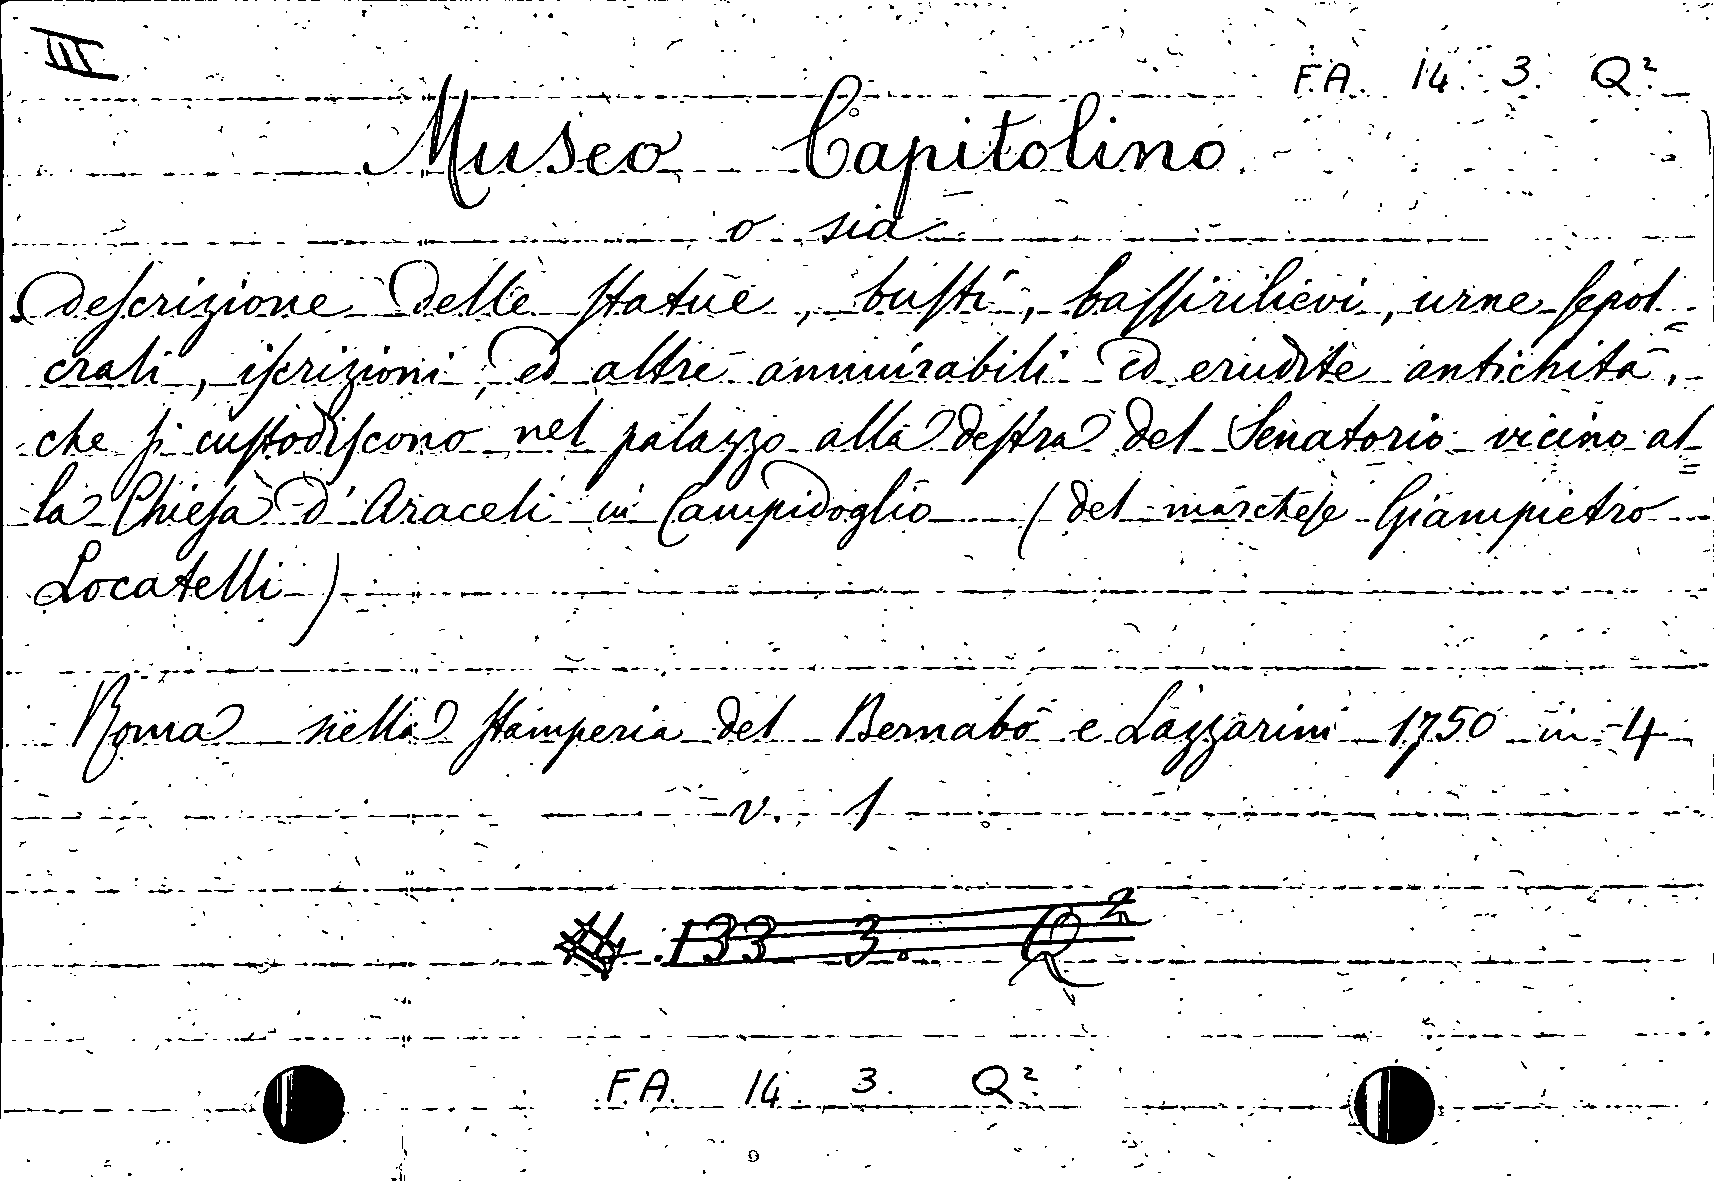 III
F.A. 14. 3. Q²
Museo Capitolino
o sia
descrizione delle statue, busti, bassirilievi, urne sepol=
crali, iscrizioni, ed altre ammirabili ed erudite antichità,
che si custodiscono nel palazzo alla destra del Senatorio vicino al=
la Chiesa d'Araceli in Campidoglio (del marchese Giampietro
Locatelli)
Roma nella stamperia del Bernabò e Lazzarini 1750 in-4
v. 1
133 3. Q²
F.A. 14. 3. Q²